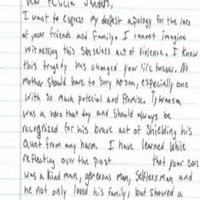 Dear Felicia Sanders,
I want to express my deepest apology for the loss
of your friends and family. I cannot imagine
witnessing this senseless act of violence. I know
this tragedy has changed your life forever. No
mother should have to bury her son, especially one
with so much potential and promise. Tywanza
was a hero that day and should always be
recognized for his brave act of shielding his
Aunt from any harm. I have learned while
reflecting over the past that your son
was a kind man, generous man, selfless man and
he not only loved his family, but showed a